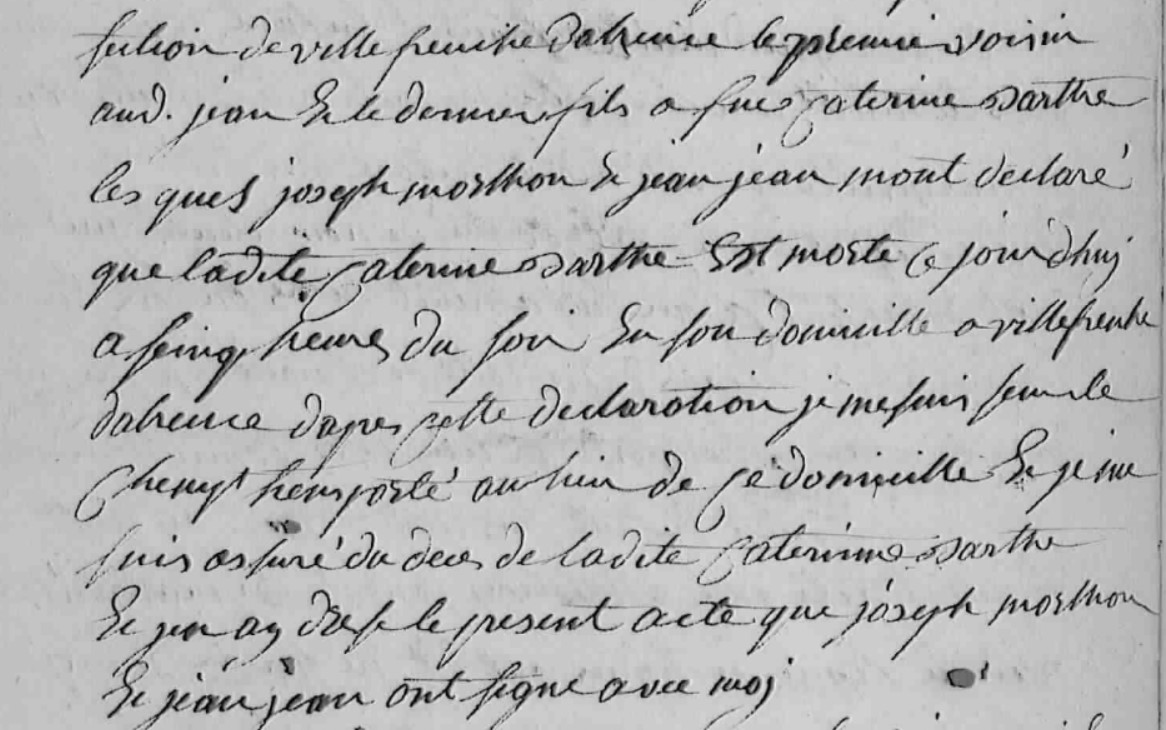 de villefrenche dalrence le premie voisin
aud. jean Et le dernier fils a fue Caterine Sarthe
les quels joseph morthon Et jean jean mont declaré
que ladite Caterine Sarthe Est morte Ce jourdhuj
a seinq heures du soir En son domicille a villefrenche
dalrence dapres Cette declarotion je me suis sur le
Chemp trensporté au lieu de Ce domicille Et je me
suis assuré du deces de ladite Caterinne Sarthe
Et jen ay le present acte que joseph morthon
Et jean jean ont signe avec moj